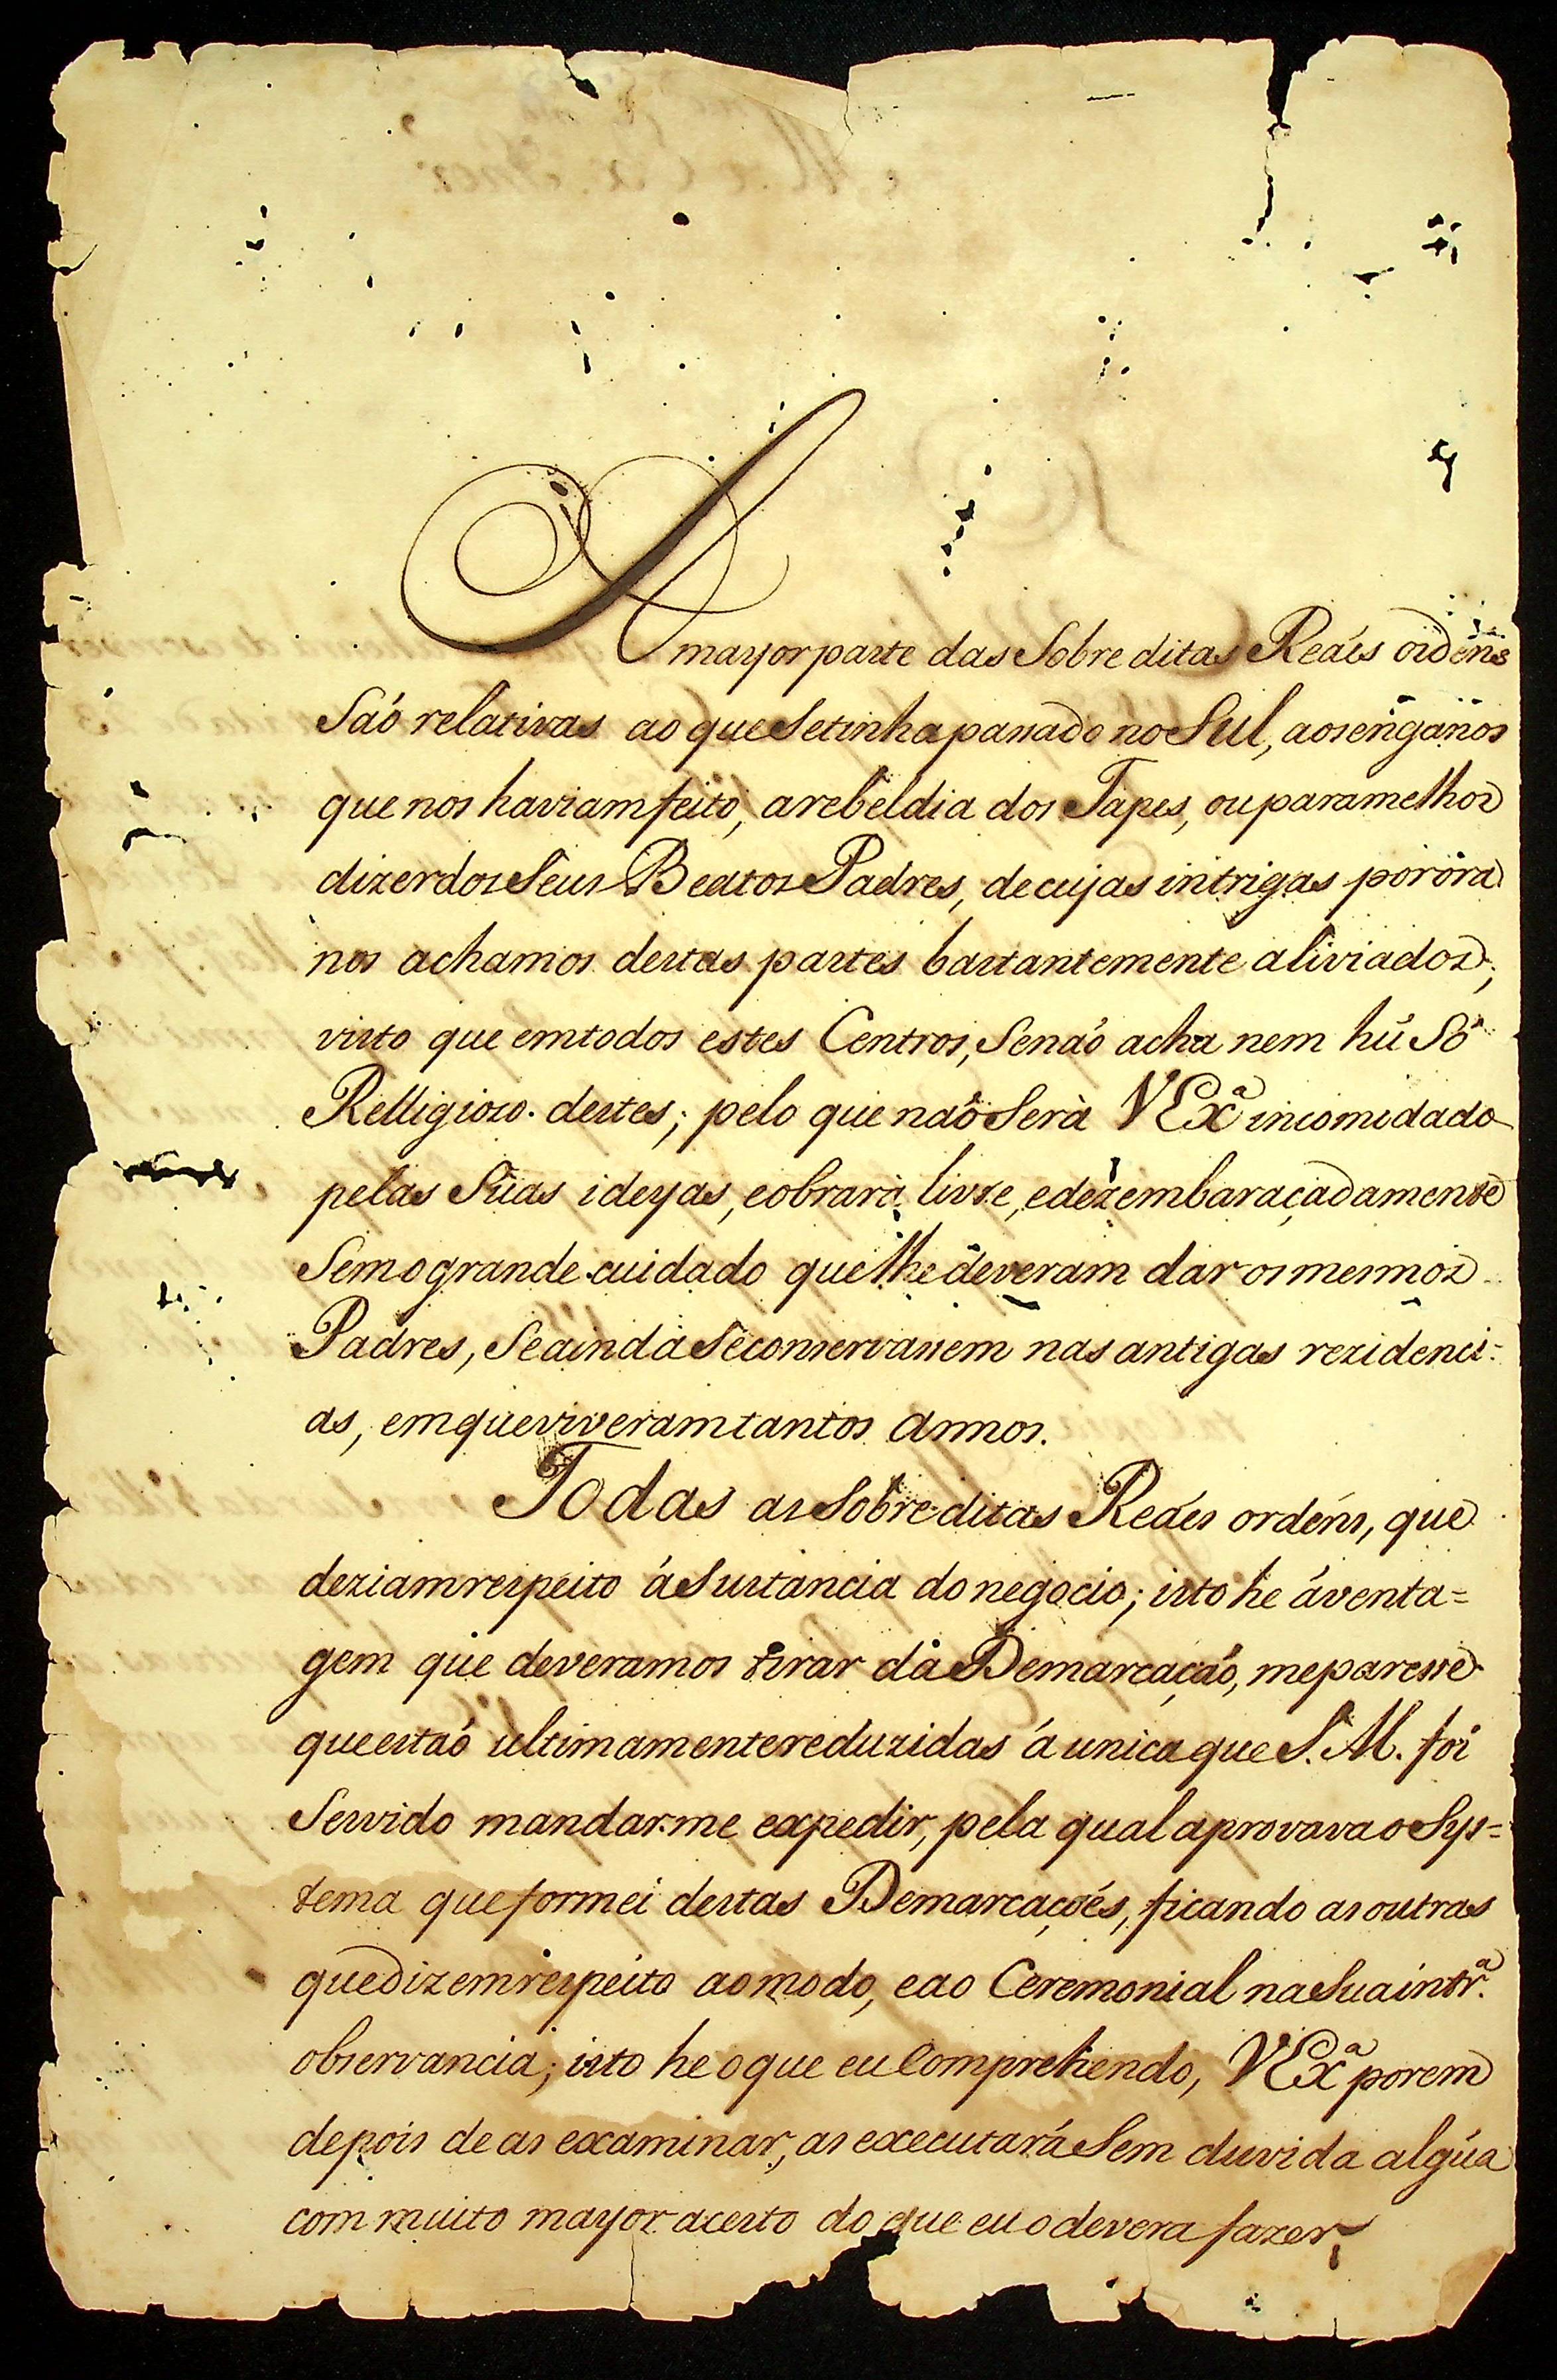 A mayor parte das Sobreditas Reaés ordéns
Saó relativas ao que Se tinha passado no Sul, aos enganos
que nos haviam feito, a rebeldia dos Tapes, ou para melhor
dizer dos Seus Beatos Padres, de cujas intrigas por ora
nos achamos destas partes bastantemente aliviados;
visto que em todos estes Centros, Se naó acha nem hũ Só
Relligiozo destes; pelo que naó Serà VExª incomodado
pelas Suas ideyas, e obrará livre, e dezembaraçadamente
Sem o grande cuidado que lhe deveram dar os mesmos
Padres, Se ainda Se conservassem nas antigas rezidenci=
as, em que viveram tantos annos.
Todas as Sobreditas Reaés ordéns, que
deziam respeito á Sustancia do negocio; isto he á venta=
gem que deveramos tirar da Demarcaçaó, me paresse
que estaó ultimamente reduzidas á unica que S. M. foi
Servido mandar-me expedir, pela qual aprovava o Sys=
tema que formei destas Demarcaçoés, ficando as outras
que dizem respeito ao modo, e ao Ceremonial na Sua intrª
observancia; isto he o que eu Comprehendo, VExª porem
depois de as examinar, as executará Sem duvida algũa
com muito mayor acerto do que eu o devera fazer,